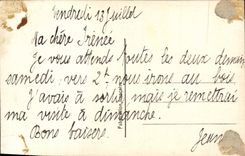 Vendredi 13 Juillet
Ma chère Irénée
Je vous attends toutes les deux demain
samedi, vers 2h nous irons au bois
J'avais à sortir mais je remettrai
ma visite à dimanche.
Bons baisers.